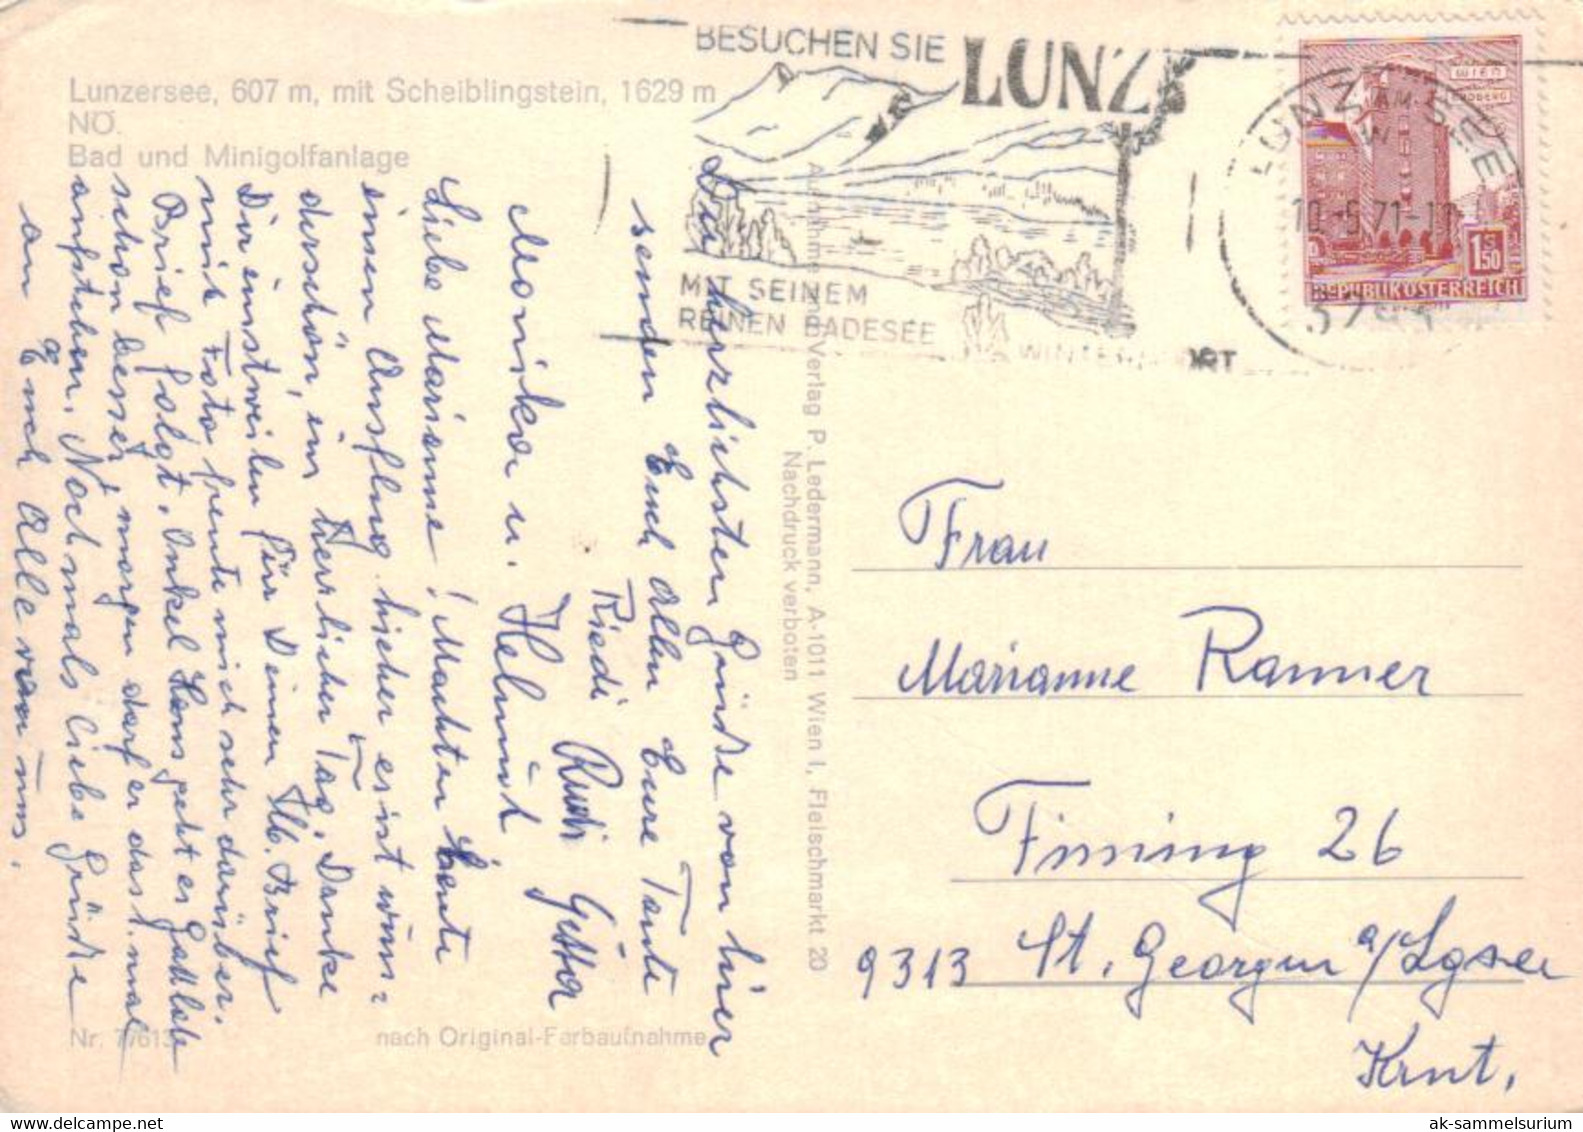 BESUCHEN SIE LUNZ
MIT SEINEM
REINEN BADESEE
WINTERSPORT
LUNZ AM SEE
10.-5.71-11
WIEN
1.50
REPUBLIK ÖSTERREICH
Lunzersee, 607 m, mit Scheiblingstein, 1629 m
NÖ.
Bad und Minigolfanlage
Die herzlichsten Grüße von hier
senden Euch allen Eure Tante
Riedi Rudi Gitta
Monika u. Helmut
Liebe Marianne! Machten heute
einen Ausflug hieher es ist wun-
derschön, ein herrlicher Tag, Danke
Dir einstweilen für Deinen lb. Brief
mit Foto freute mich sehr darüber.
Brief folgt, Onkel Hans geht es Gottlob
schon besser, morgen darf er das 1. mal
aufstehen. Nochmals liebe Grüße
an Euch Alle von uns.
Aufnahme und Verlag P. Ledermann, A-1011 Wien I, Fleischmarkt 20
Nachdruck verboten
Frau
Marianne Ranner
Fiming 26
9313 St. Georgen a/Lgsee
Krnt.
nach Original-Farbaufnahme
ak-sammelsurium.com